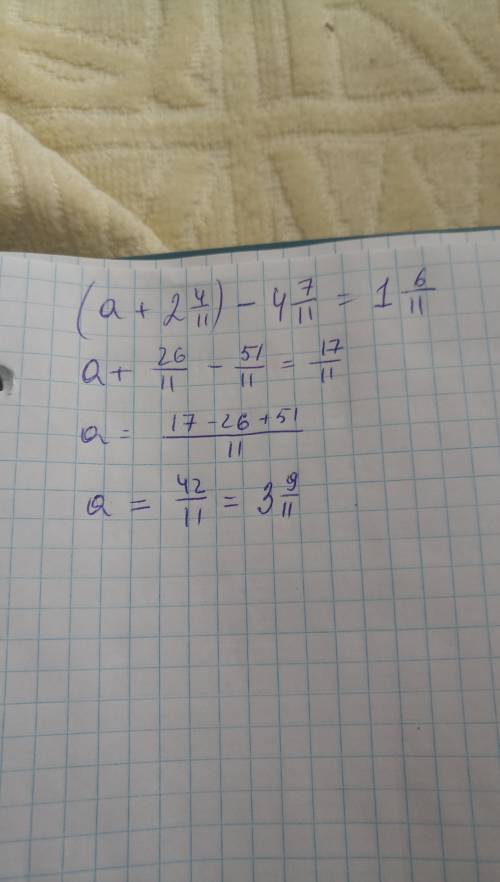 (a + 2 4/11) - 4 7/11 = 1 6/11
a + 26/11 - 51/11 = 17/11
a = (17 - 26 + 51)/11
a = 42/11 = 3 9/11